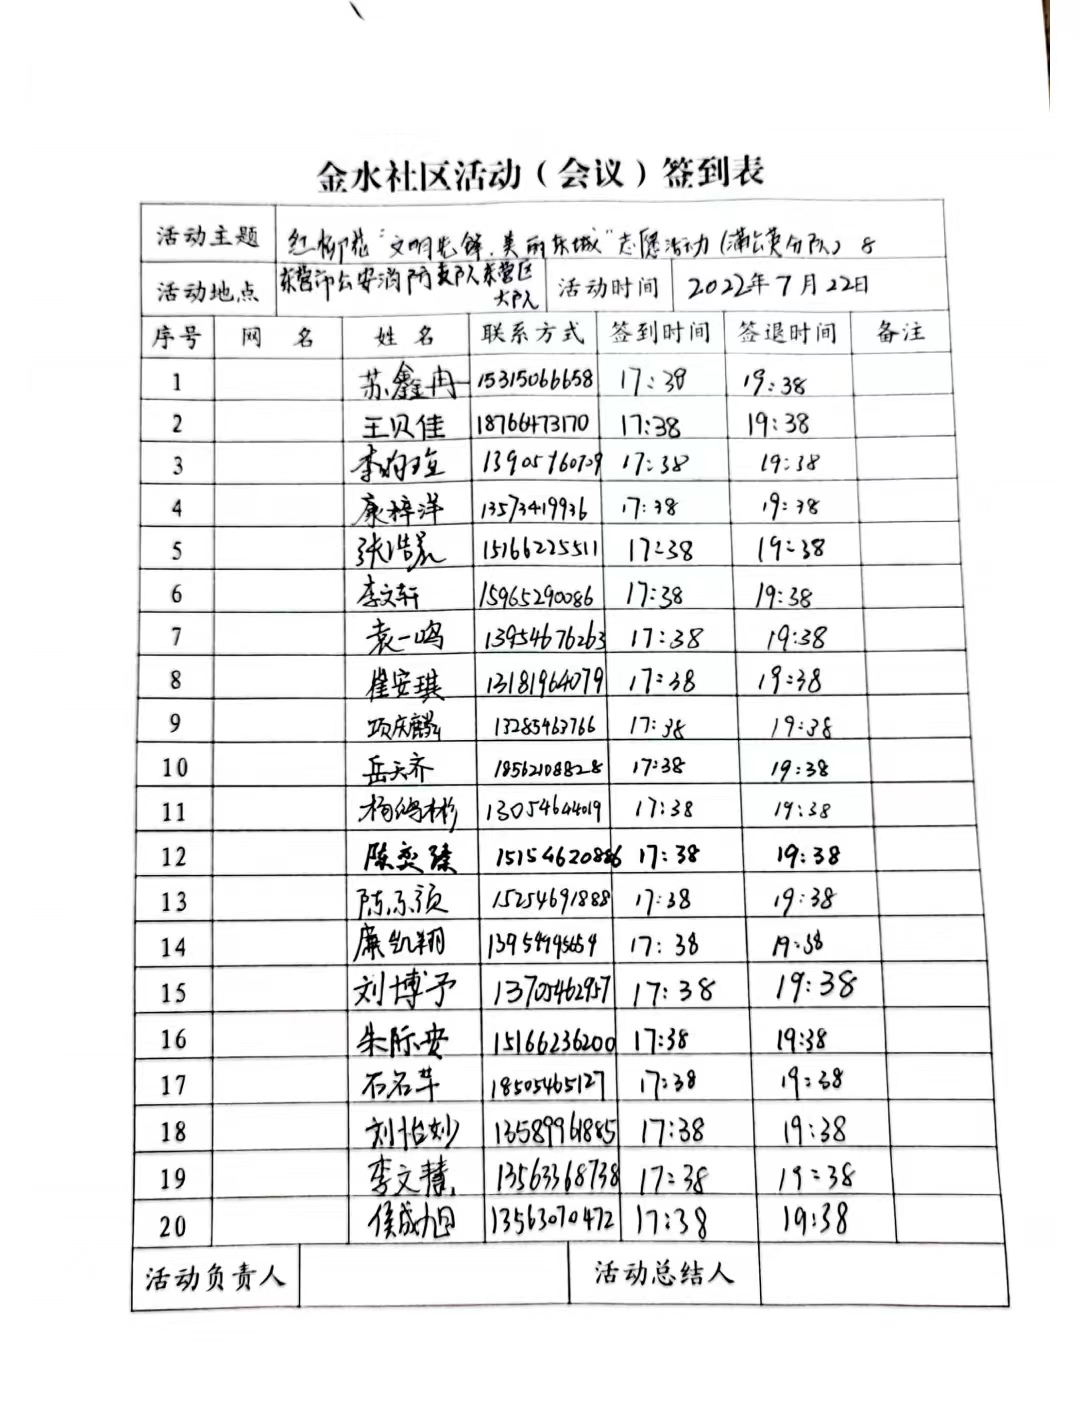 金水社区活动（会议）签到表
活动主题 红柳花“文明先锋，美丽东城”志愿活动（蒲公英分队）8
活动地点 东营市公安消防支队东营区大队 活动时间 2022年7月22日
序号 网 名 姓 名 联系方式 签到时间 签退时间 备注
1 苏鑫冉 15315066658 17:38 19:38
2 王贝佳 18766473170 17:38 19:38
3 17:38 19:38
4 康梓洋 13573419936 17:38 19:38
5 15166225511 17:38 19:38
6 李文轩 15965290086 17:38 19:38
7 袁一鸣 13954676263 17:38 19:38
8 崔安琪 13181964079 17:38 19:38
9 项庆麟 13285463766 17:38 19:38
10 岳天齐 18562108828 17:38 19:38
11 13054644019 17:38 19:38
12 陈奕臻 15154620886 17:38 19:38
13 15254691888 17:38 19:38
14 廉凯翔 17:38 19:38
15 刘博予 13705462957 17:38 19:38
16 15166236200 17:38 19:38
17 18505465127 17:38 19:38
18 刘怡妙 13589961885 17:38 19:38
19 李文慧 13563368738 17:38 19:38
20 侯成旭 13563070472 17:38 19:38
活动负责人 活动总结人